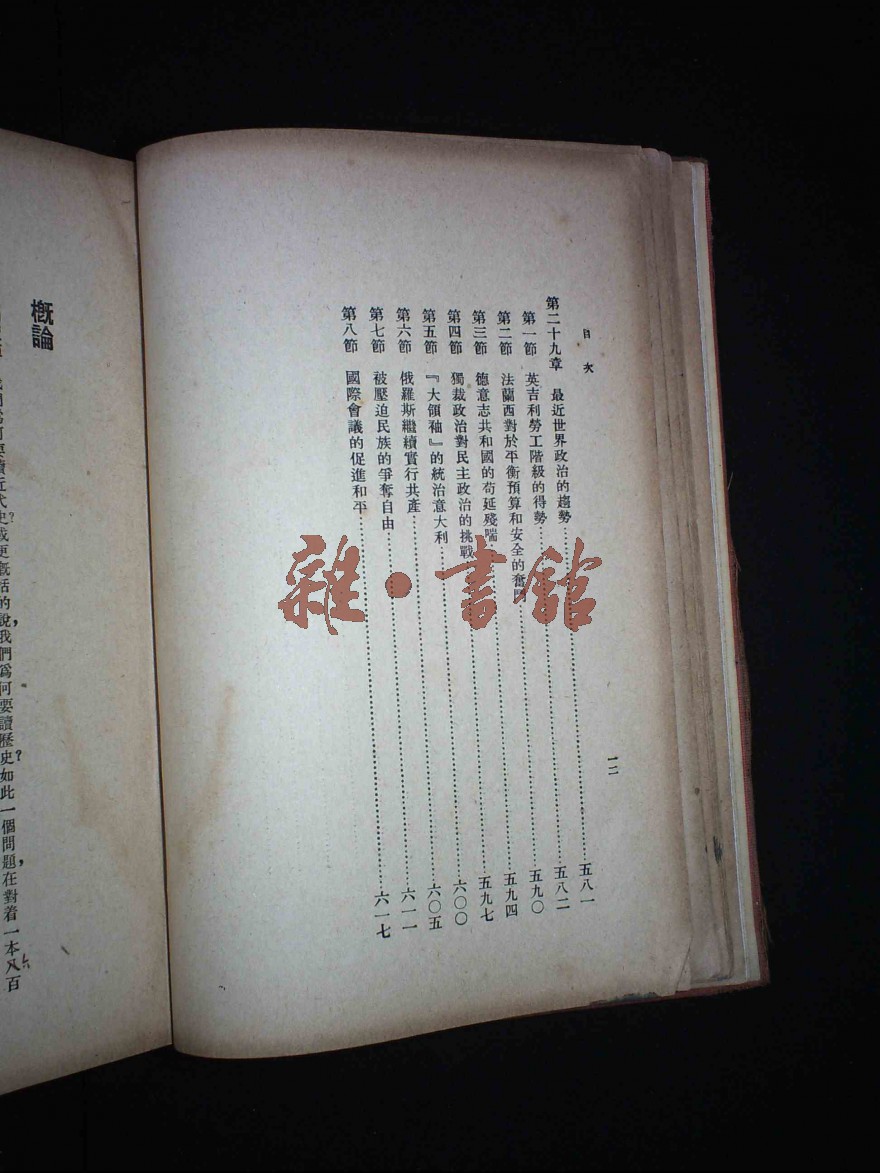 目次
一二
第二十九章 最近世界政治的趨勢……五八一
第一節 英吉利勞工階級的得勢……五八二
第二節 法蘭西對於平衡預算和安全的奮……五九〇
第三節 德意志共和國的苟延殘喘……五九四
第四節 獨裁政治對民主政治的挑戰……五九七
第五節 『大領袖』的統治意大利……六〇〇
第六節 俄羅斯繼續實行共產……六〇五
第七節 被壓迫民族的爭奪自由……六一一
第八節 國際會議的促進和平……六一七
雜·書館
概論
我們爲何要讀近代史?或更概括的說,我們爲何要讀歷史?如此一個問題,在對着一本八百
六